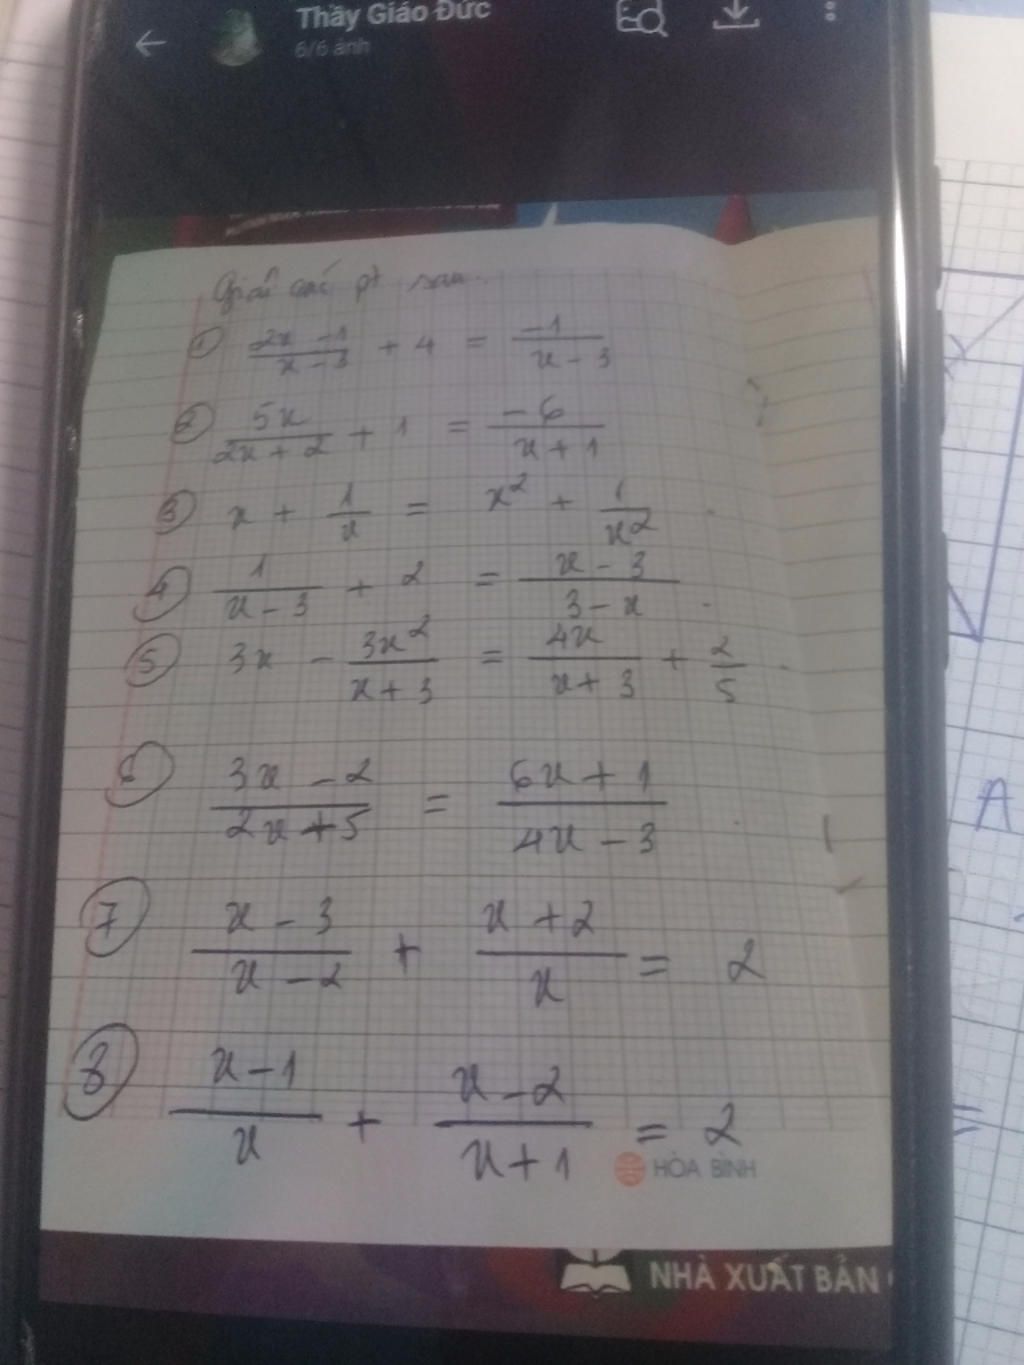 Thầy Giáo Đức
6/6 ảnh
Giải các pt sau.
① (2x - 1)/(x - 3) + 4 = (-1)/(x - 3)
② 5x/(2x + 2) + 1 = (-6)/(x + 1)
③ x + 1/x = x² + 1/x²
④ 1/(x - 3) + 2 = (x - 3)/(3 - x)
⑤ 3x - 3x²/(x + 3) = 4x/(x + 3) + 2/5
⑥ (3x - 2)/(2x + 5) = (6x + 1)/(4x - 3)
⑦ (x - 3)/(x - 2) + (x + 2)/x = 2
⑧ (x - 1)/x + (x - 2)/(x + 1) = 2
HÒA BÌNH
NHÀ XUẤT BẢN
A